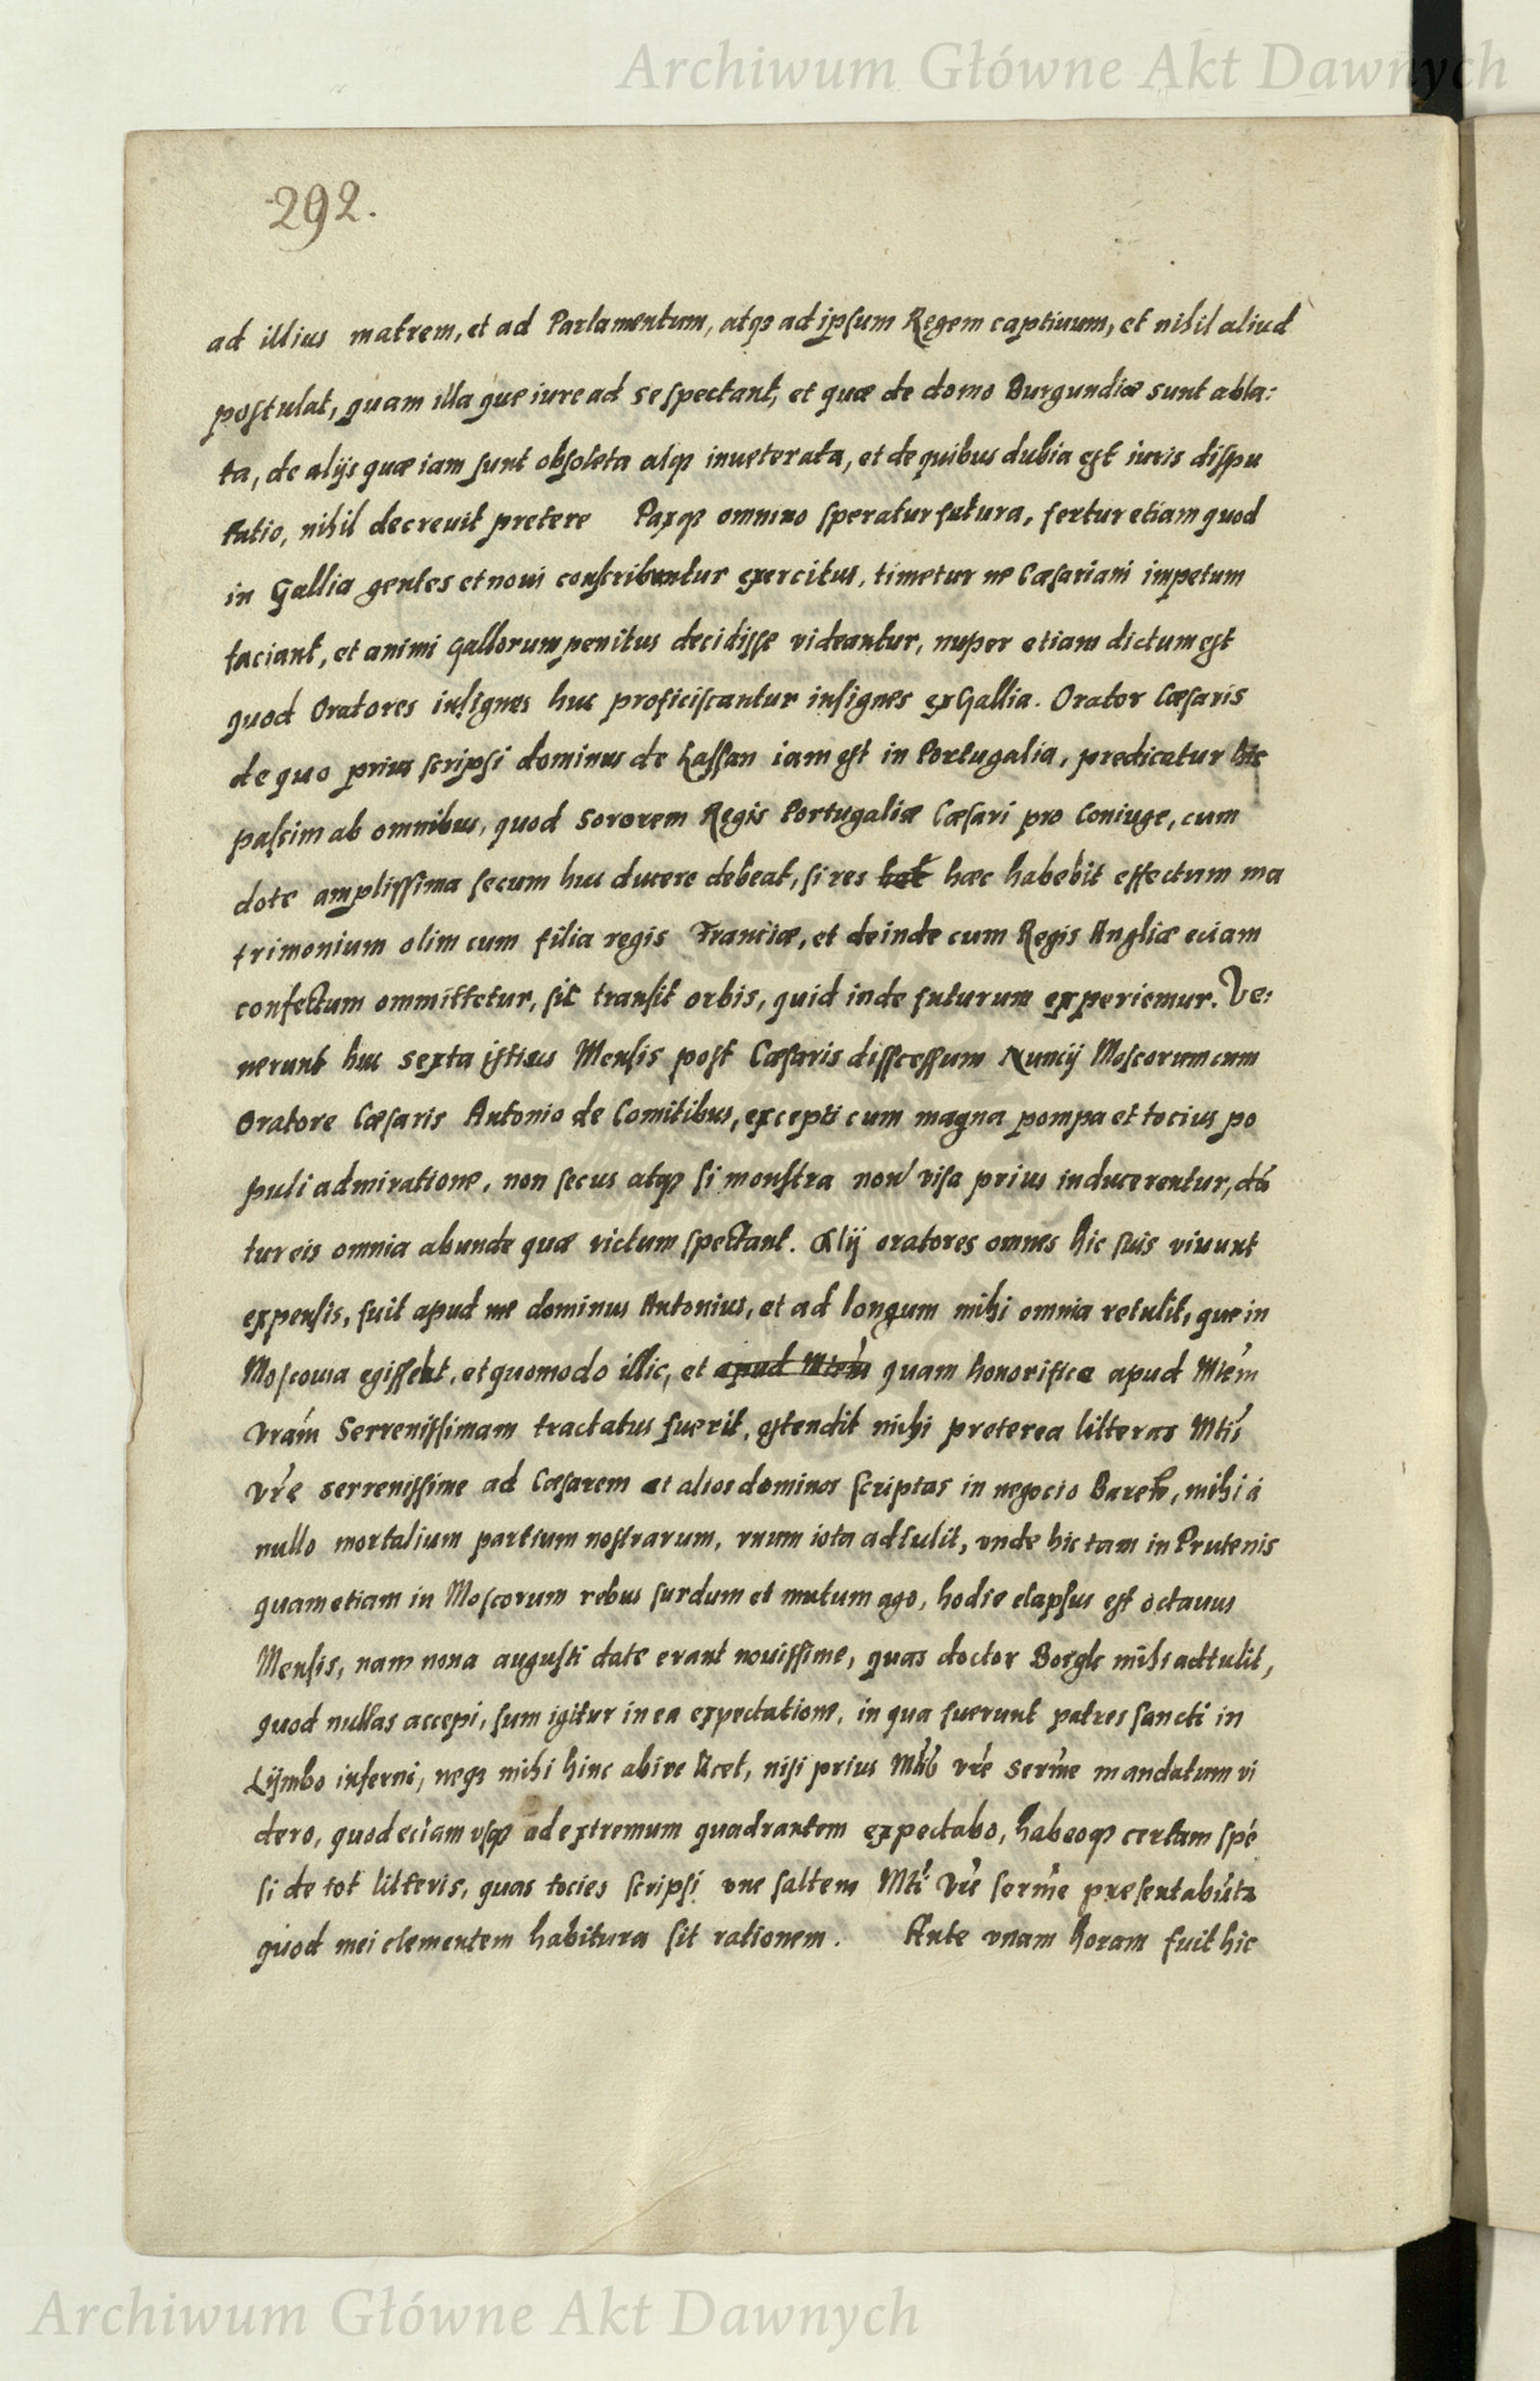 Archiwum Główne Akt Dawnych
292.
ad illius matrem, et ad Parlamentum, atqꝫ ad ipsum Regem captiuum, et nihil aliud
postulat, quam illa que iure ad se spectant, et quæ de domo Burgundiæ sunt abla:
ta, de alijs quæ iam sunt obsoleta atqꝫ inueterata, et de quibus dubia est iuris dispu
tatio, nihil decreuit pretere Paxqꝫ omnino speratur futura, fertur etiam quod
in Gallia gentes et noui conscribuntur exercitus, timetur ne Cæsariani impetum
faciant, et animi Gallorum penitus decidisse videantur, nuper etiam dictum est
quod Oratores insignes huc proficiscantur insignes ex Gallia. Orator Cæsaris
de quo prius scripsi dominus de Lassan iam est in Portugalia, predicatur hic
passim ab omnibus, quod sororem Regis Portugaliæ Cæsari pro Coniuge, cum
dote amplissima secum huc ducere debeat, si res hæc habebit effectum ma
trimonium olim cum filia regis Franciæ, et deinde cum Regis Angliæ eciam
confectum ommittetur, sic transit orbis, quid inde futurum experiemur. Ve:
nerunt huc sexta istius Mensis post Cæsaris disscessum Nuncij Moscorum cum
Oratore Cæsaris Antonio de Comitibus, excepti cum magna pompa et tocius po
puli admiratione, non secus atqꝫ si monstra non visa prius inducerentur, dā
tur eis omnia abunde quæ victum spectant. Alij oratores omnes hic suis viuunt
expensis, fuit apud me dominus Antonius, et ad longum mihi omnia retulit, que in
Moscouia egissent, et quomodo illic, et apud Mtem quam honorifice apud Mtem
vram Serrenissimam tractatus fuerit, ostendit michi preterea litteras Mtis
vre serrenissime ad Cæsarem et alios dominos scriptas in negocio Baren, mihi à
nullo mortalium partium nostrarum, vnum iota adtulit, vnde hic tam in Prutenis
quam etiam in Moscorum rebus surdum et mutum ago, hodie elapsus est octauus
Mensis, nam nona augusti date erant nouissime, quas doctor Borgk mihi adtulit,
quod nullas accepi, sum igitur in ea expectatione, in qua fuerunt patres sancti in
Lijmbo inferni, neqꝫ mihi hinc abire licet, nisi prius Mtis vre serme mandatum vi
dero, quod eciam vsqꝫ ad extremum quadrantem expectabo, habeoqꝫ certam spē
si de tot litteris, quas tocies scripsi vne saltem Mti vre serme presentabūtr
quod mei clementem habitura sit rationem. Ante vnam horam fuit hic
Archiwum Główne Akt Dawnych